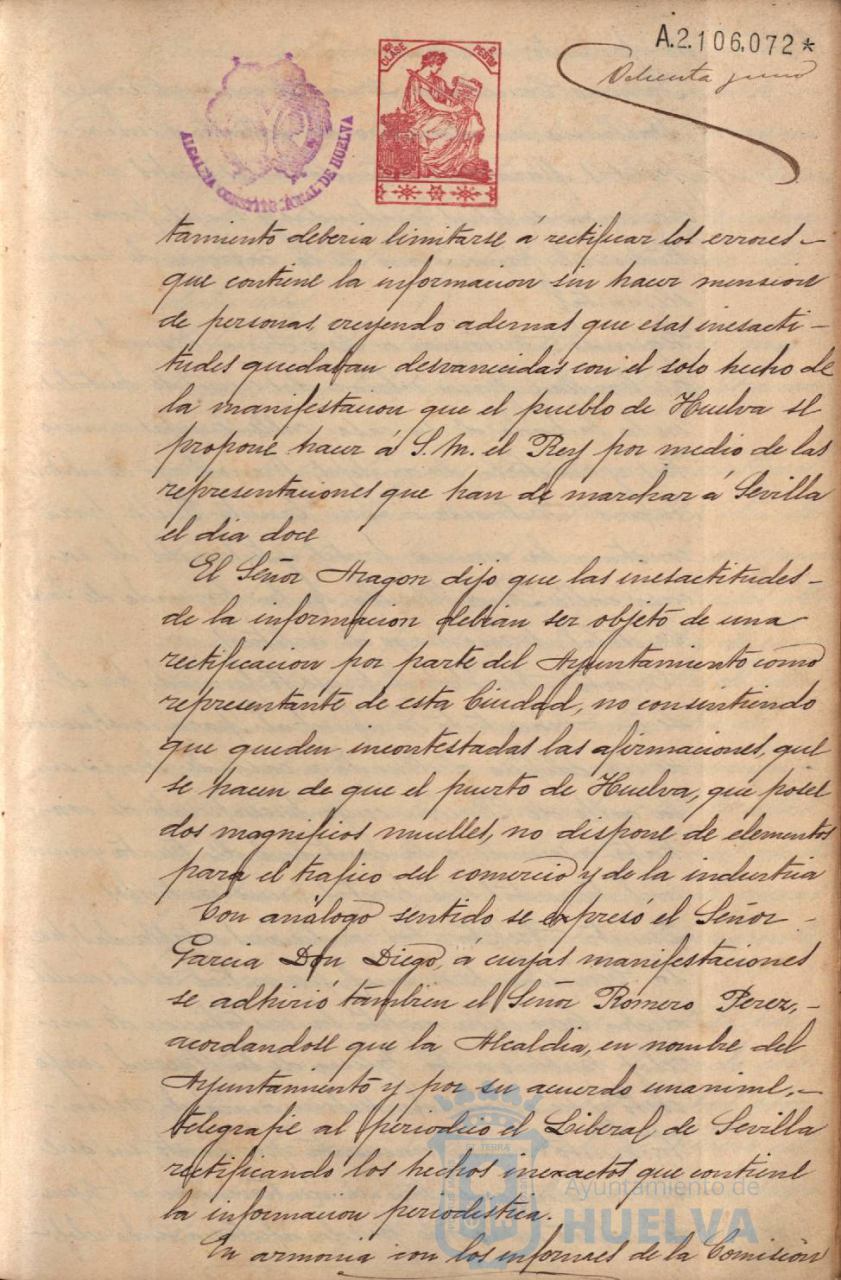 A.2.106.072*
Ochenta y uno
ALCALDIA CONSTITUCIONAL DE HUELVA
CLASE
PESTAS
tamiento deberia limitarse á rectificar los errores-
que contiene la informacion sin hacer mension
de personas creyendo ademas que esas inesacti-
tudes quedaban desvanecidas con el solo hecho de
la manifestacion que el pueblo de Huelva se
propone hacer á S. M. el Rey por medio de las
representaciones que han de marchar á Sevilla
el dia doce
El Señor Aragon dijo que las inesactitudes-
de la informacion debian ser objeto de una
rectificacion por parte del Ayuntamiento como
representante de esta Ciudad, no consintiendo
que queden incontestadas las afirmaciones, que
se hacen de que el puerto de Huelva, que posee
dos magnificos muelles, no dispone de elementos
para el trafico del comercio y de la industria
Con análogo sentido se expresó el Señor -
Garcia Don Diego, á cuyas manifestaciones
se adhirió tambien el Señor Romero Perez,-
acordandose que la Alcaldia, en nombre del
Ayuntamiento y por su acuerdo unanime,-
telegrafie al periodico el Liberal de Sevilla
rectificando los hechos inexactos que contiene
la informacion periodistica.
En armonia con los informes de la Comisión
Ayuntamiento de
HUELVA